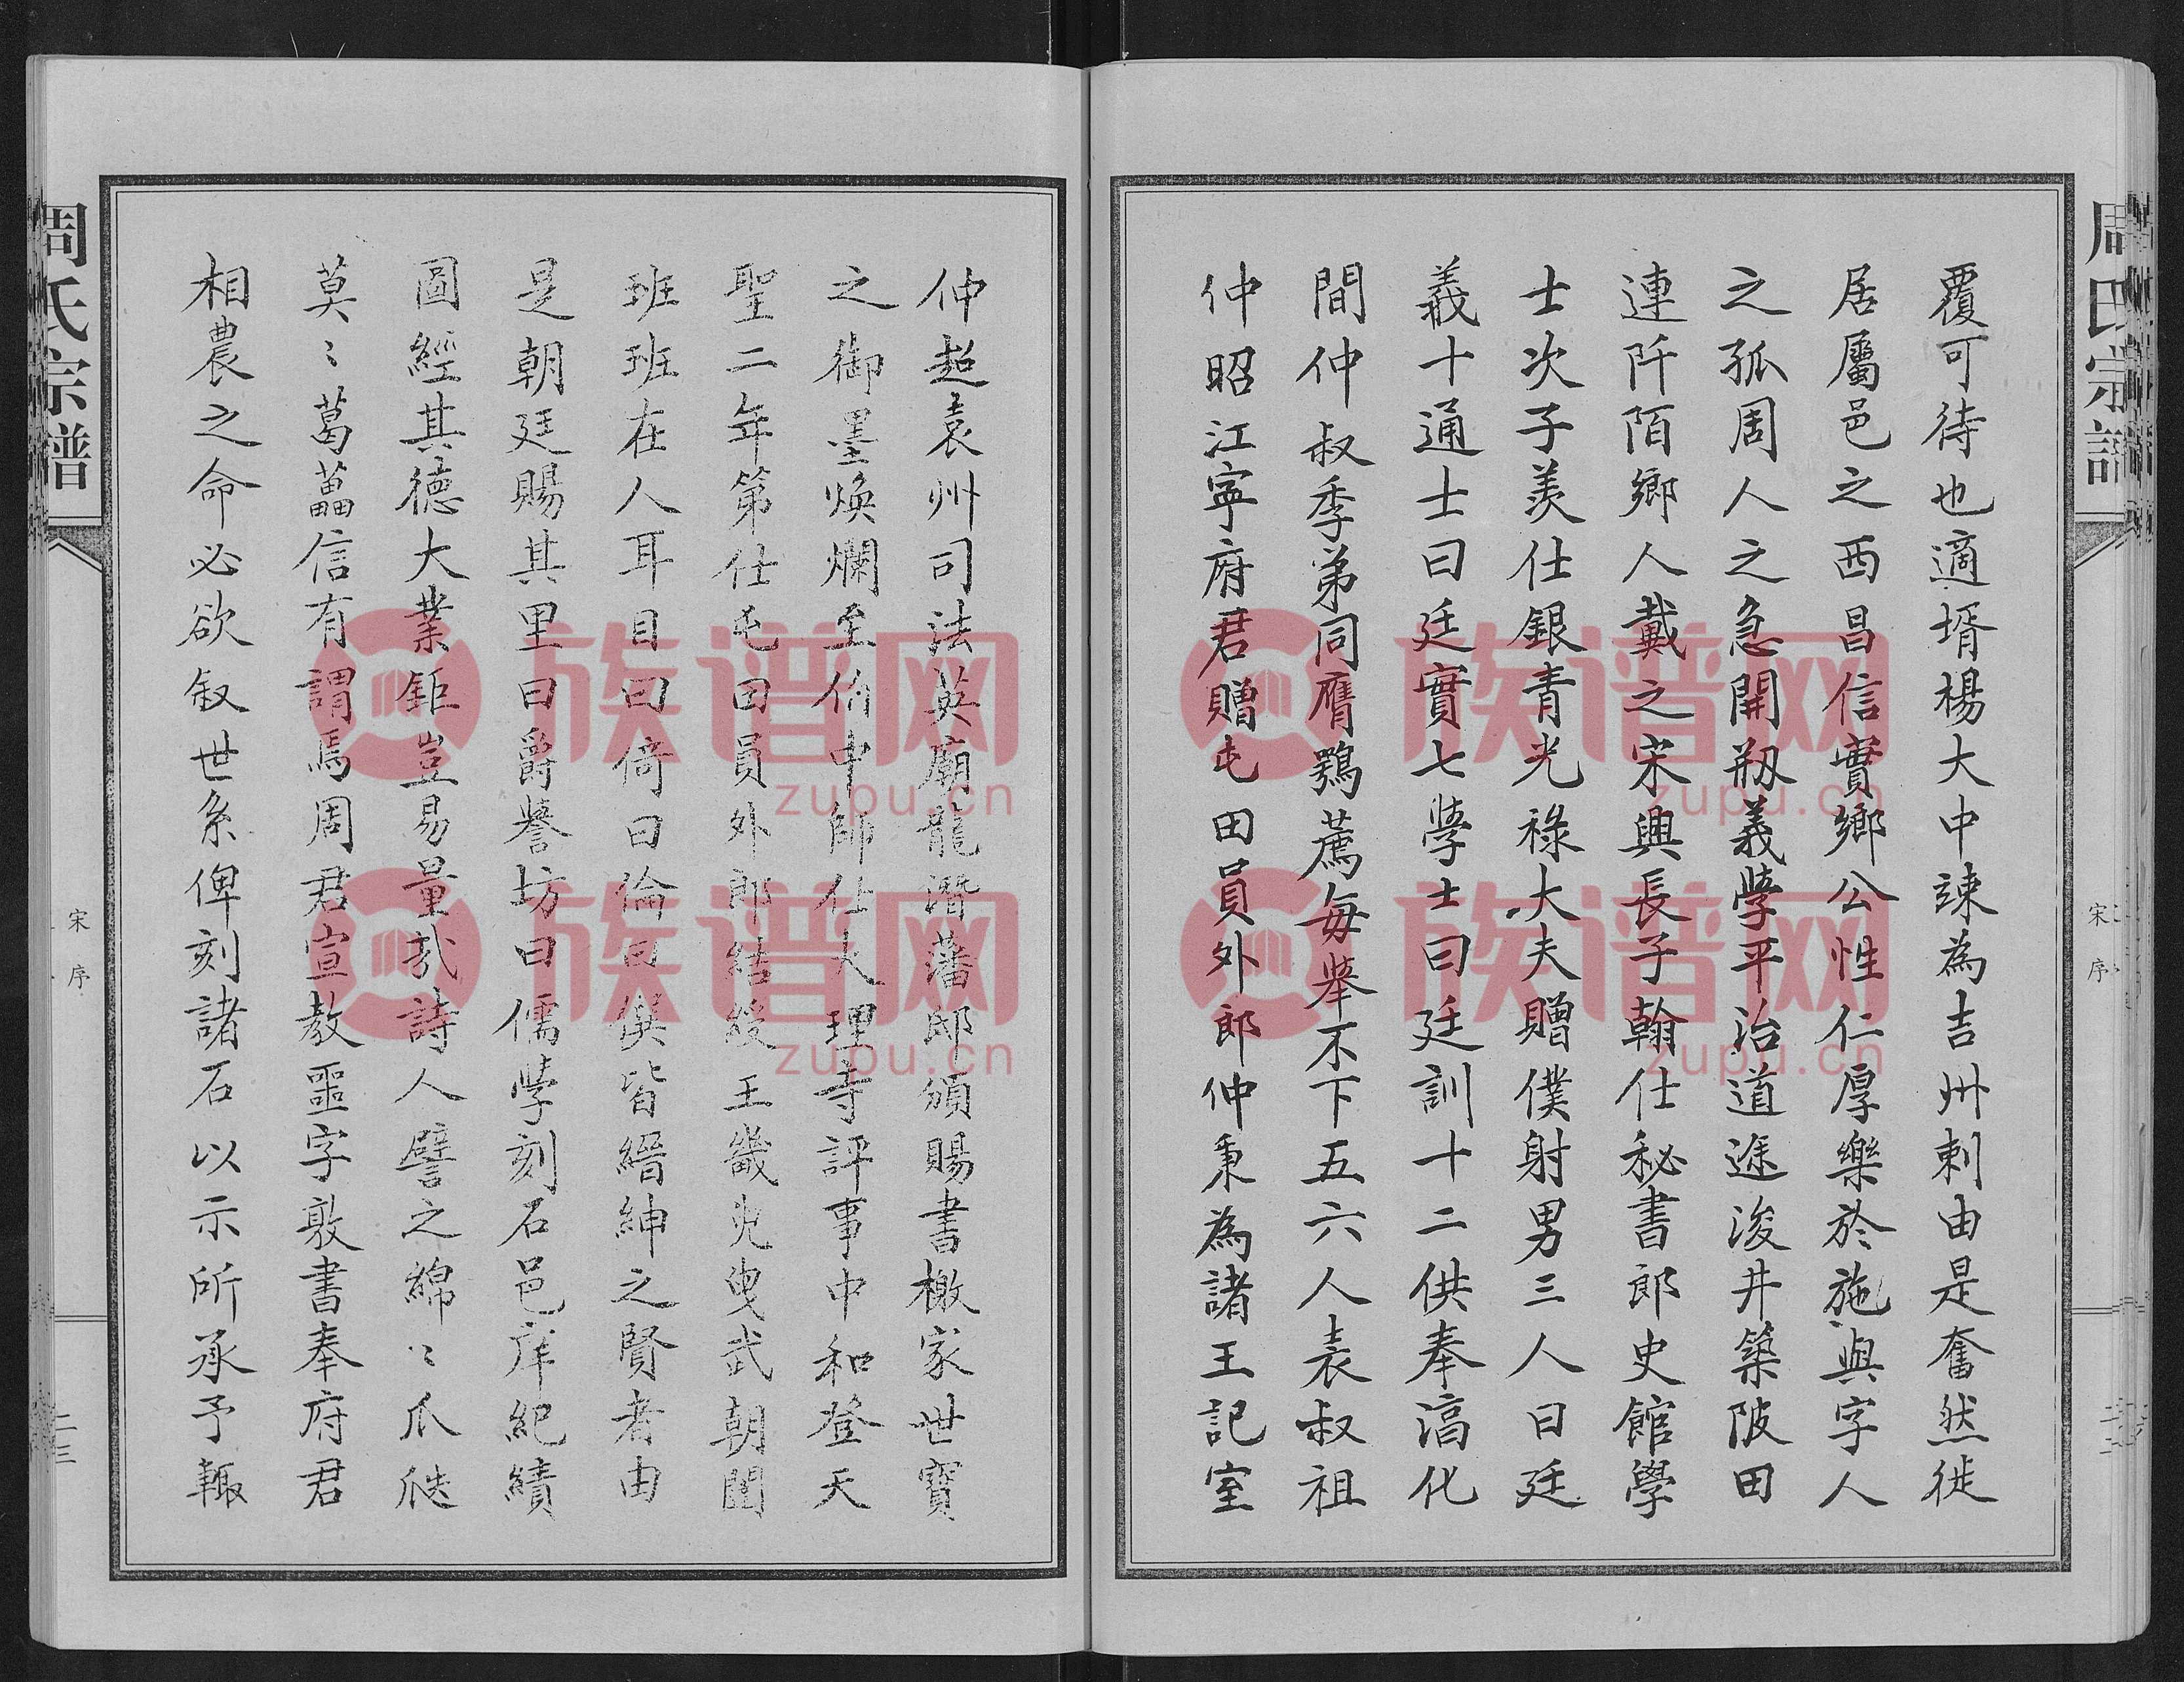 周氏宗譜
宋序
二二
覆可待也適壻楊大中諫為吉州刺由是奮然徙
居屬邑之西昌信實鄉公性仁厚樂於施與字人
之孤周人之急開剏義學平治道途浚井築陂田
連阡陌鄉人戴之宋興長子翰仕秘書郎史館學
士次子羨仕銀青光祿大夫贈僕射男三人曰廷
義十通士曰廷實七學士曰廷訓十二供奉滈化
間仲叔季弟同膺鶚薦每舉不下五六人袁叔祖
仲昭江寧府君贈屯田員外郎仲秉為諸王記室
仲超袁州司法英廟龍潛藩邸頒賜書檄家世寶
之御墨煥爛至伯中師仕大理寺評事中和登天
聖二年第仕屯田員外郎結綬王畿鳧曳武朝閨
班班在人耳目曰倚曰倫曰僎皆縉紳之賢者由
是朝廷賜其里曰爵譽坊曰儒學刻石邑庠紀績
圖經其德大業鉅豈易量哉詩人譬之綿〻瓜瓞
莫〻葛藟信有謂焉周君宣教噩字敦書奉府君
相農之命必欲敘世系俾刻諸石以示所承予輒
周氏宗譜
宋序
二三
族谱网
zupu.cn
族谱网
zupu.cn
族谱网
zupu.cn
族谱网
zupu.cn